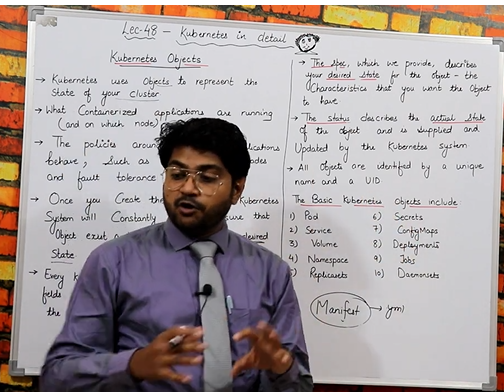 Lec-48 - Kubernetes in detail
Kubernetes Objects
→ Kubernetes uses Objects to represent the
State of your cluster
→ What Containerized applications are running
(and on which node)
→ The policies around
behave, Such as
and fault tolerance
→ Once you Create the Kubernetes
System will Constantly sure that
Object exist desired
State
→ Every
fields
the
→ The spec, which we provide, describes
your desired state for the object - the
Characteristics that you want the Object
to have
→ The status describes the actual state
of the object and is supplied and
Updated by the Kubernetes system
→ All Objects are identified by a unique
name and a UID
The Basic Kubernetes Objects include
1) Pod
2) Service
3) Volume
4) Namespace
5) Replicasets
6) Secrets
7) ConfigMaps
8) Deployments
9) Jobs
10) Daemonsets
Manifest → yml